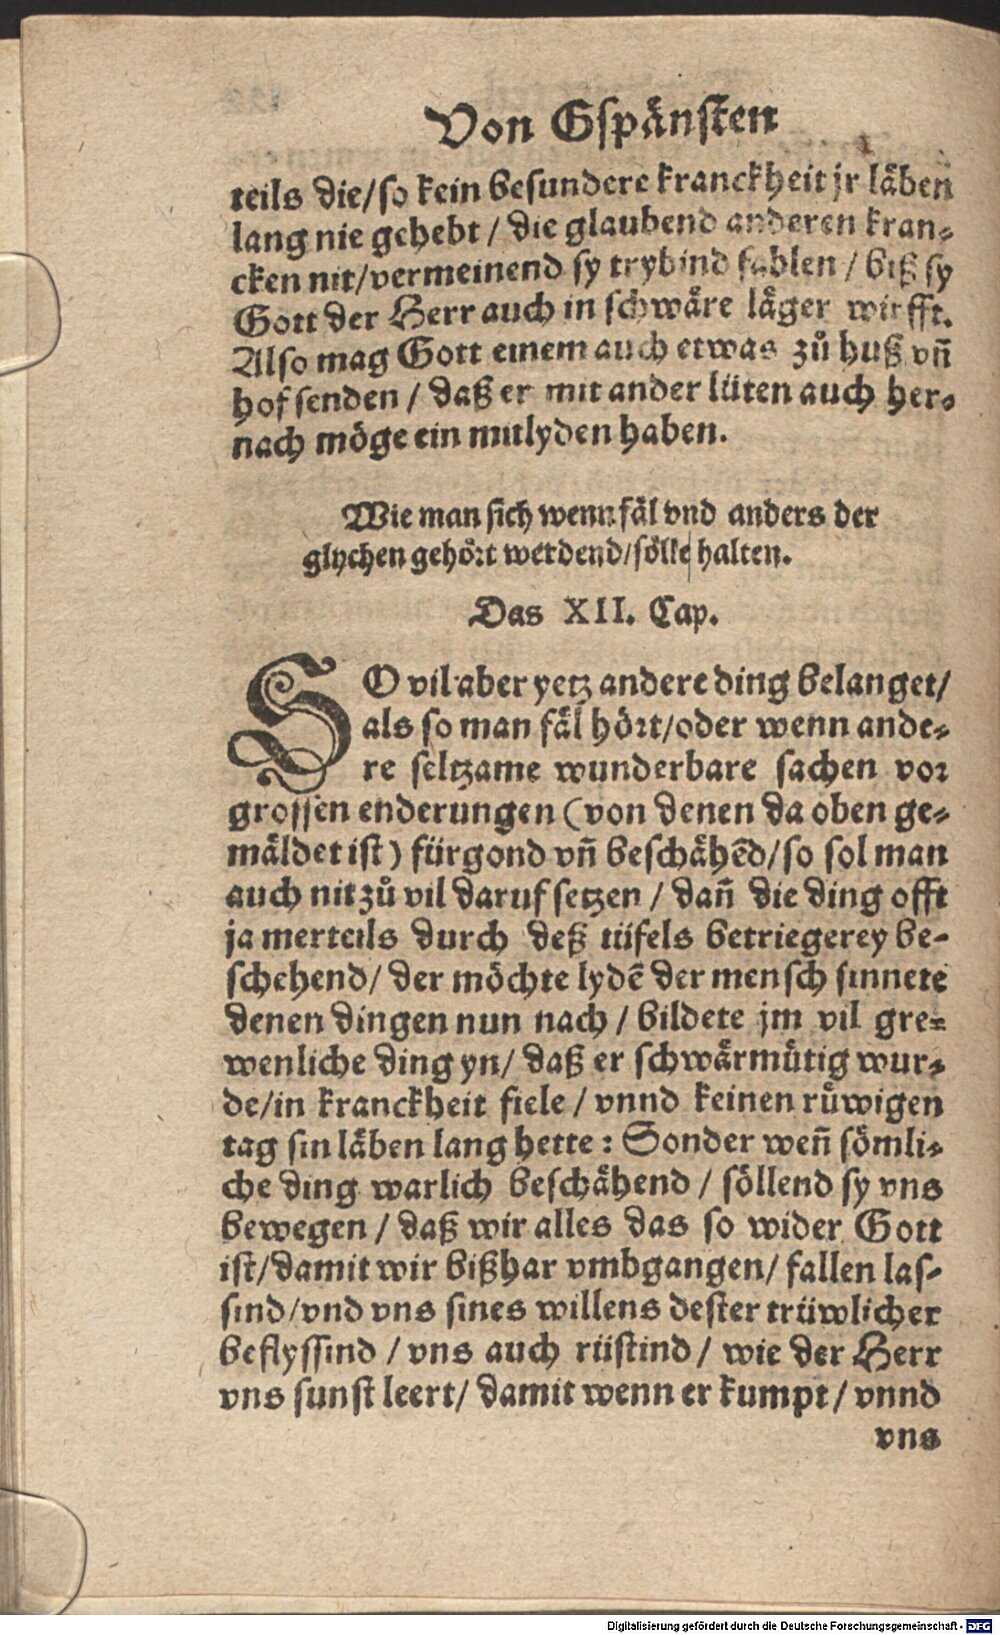 Von Gspänsten
teils die/so kein besundere kranckheit jr läben
lang nie gehebt / die glaubend anderen kran⸗
cken nit/vermeinend sy trybind fablen / biß sy
Gott der Herr auch in schwäre läger wirfft.
Also mag Gott einem auch etwas zů huß vñ
hof senden / daß er mit ander lüten auch her⸗
nach möge ein mitlyden haben.
Wie man sich wenn fäl vnd anders der
glychen gehört werdend/sölle halten.
Das XII. Cap.
SO vil aber yetz andere ding belanget/
als so man fäl hört/oder wenn ande⸗
re seltzame wunderbare sachen vor
grossen enderungen (von denen da oben ge⸗
mäldet ist) fürgond vñ beschähẽd/so sol man
auch nit zů vil daruf setzen / dañ die ding offt
ja merteils durch deß tüfels betriegerey be-
schehend/ der möchte lydẽ der mensch sinnete
denen dingen nun nach / bildete jm vil gre⸗
wenliche ding yn/ daß er schwärmütig wur⸗
de/in kranckheit fiele / vnnd keinen rüwigen
tag sin läben lang hette : Sonder weñ sömli⸗
che ding warlich beschähend / söllend sy vns
bewegen / daß wir alles das so wider Gott
ist/damit wir bißhar vmbgangen/ fallen las-
sind/vnd vns sines willens dester trüwlicher
beflyssind / vns auch rüstind / wie der Herr
vns sunst leert/ damit wenn er kumpt / vnnd
vns
Digitalisierung gefördert durch die Deutsche Forschungsgemeinschaft - DFG